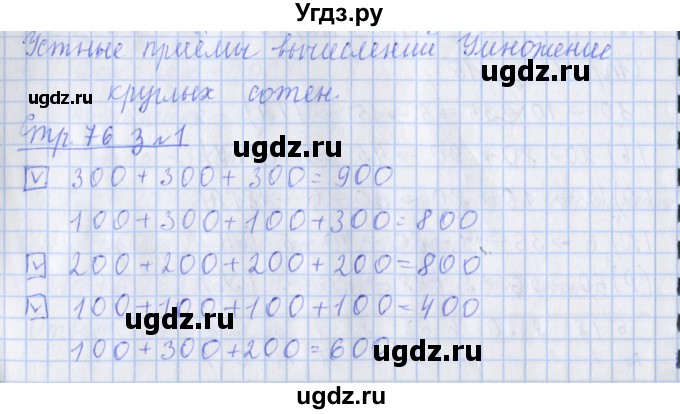 Угдз.ру
Устные приёмы вычислений Умножение
ugdz.ru
ugdz.ru круглых сотен.
Стр. 76 з №1
ugdz.ru
v 300 + 300 + 300 = 900
100 + 300 + 100 + 300 = 800
v 200 + 200 + 200 + 200 = 800
ugdz.ru
v 100 + 100 + 100 + 100 = 400
ugdz.ru
100 + 300 + 200 = 600
ugdz.ru
ugdz.ru